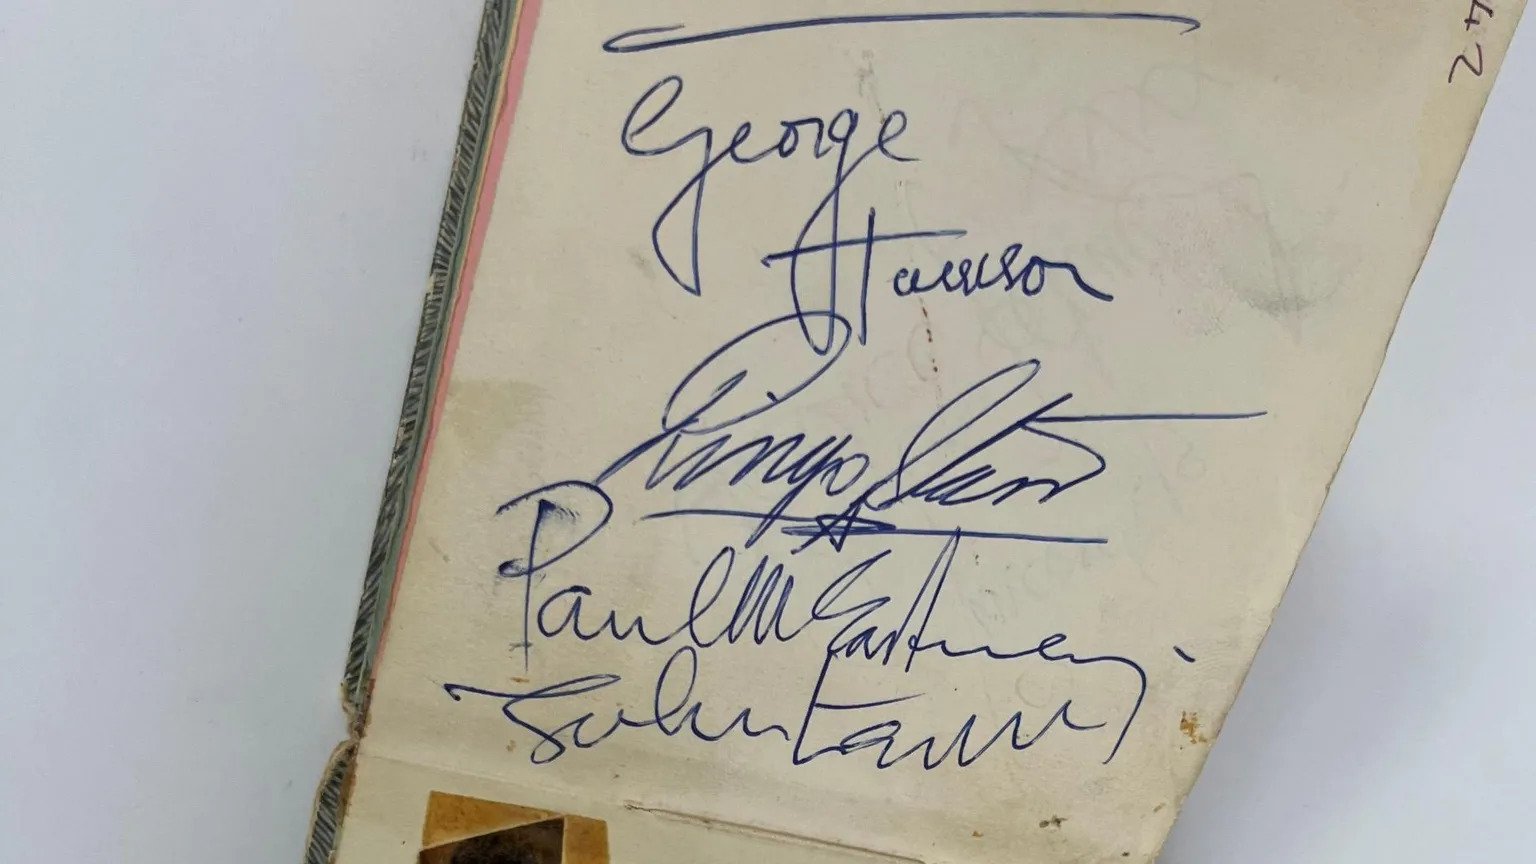 George
Harrison
Ringo Starr
Paul McCartney
John Lennon